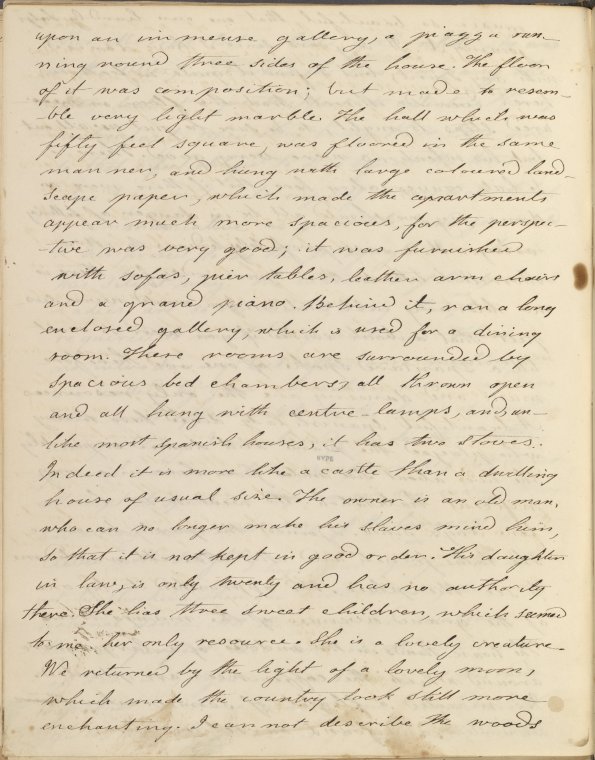 upon an immense gallery, a piazza run-
ning round three sides of the house. The floor
of it was composition; but made to resem-
ble very light marble. The hall which was
fifty feet square, was floored in the same
manner, and hung with large coloured land-
scape paper, which made the apartments
appear much more spacious, for the perspec-
tive was very good; it was furnished
with sofas, pier tables, leather arm chairs
and a grand piano. Behind it, ran a long
enclosed gallery, which is used for a dining
room. These rooms are surrounded by
spacious bed chambers, all thrown open
and all hung with centre-lamps, and, un-
like most Spanish houses, it has two stoves.
NYPL
Indeed it is more like a castle than a dwelling
house of usual size. The owner is an old man,
who can no longer make his slaves mind him,
so that it is not kept in good order. His daughter
in law, is only twenty and has no authority
there. She has three sweet children, which seemed
to me her only resource. She is a lovely creature.
We returned by the light of a lovely moon,
which made the country look still more
enchanting. I can not describe the woods